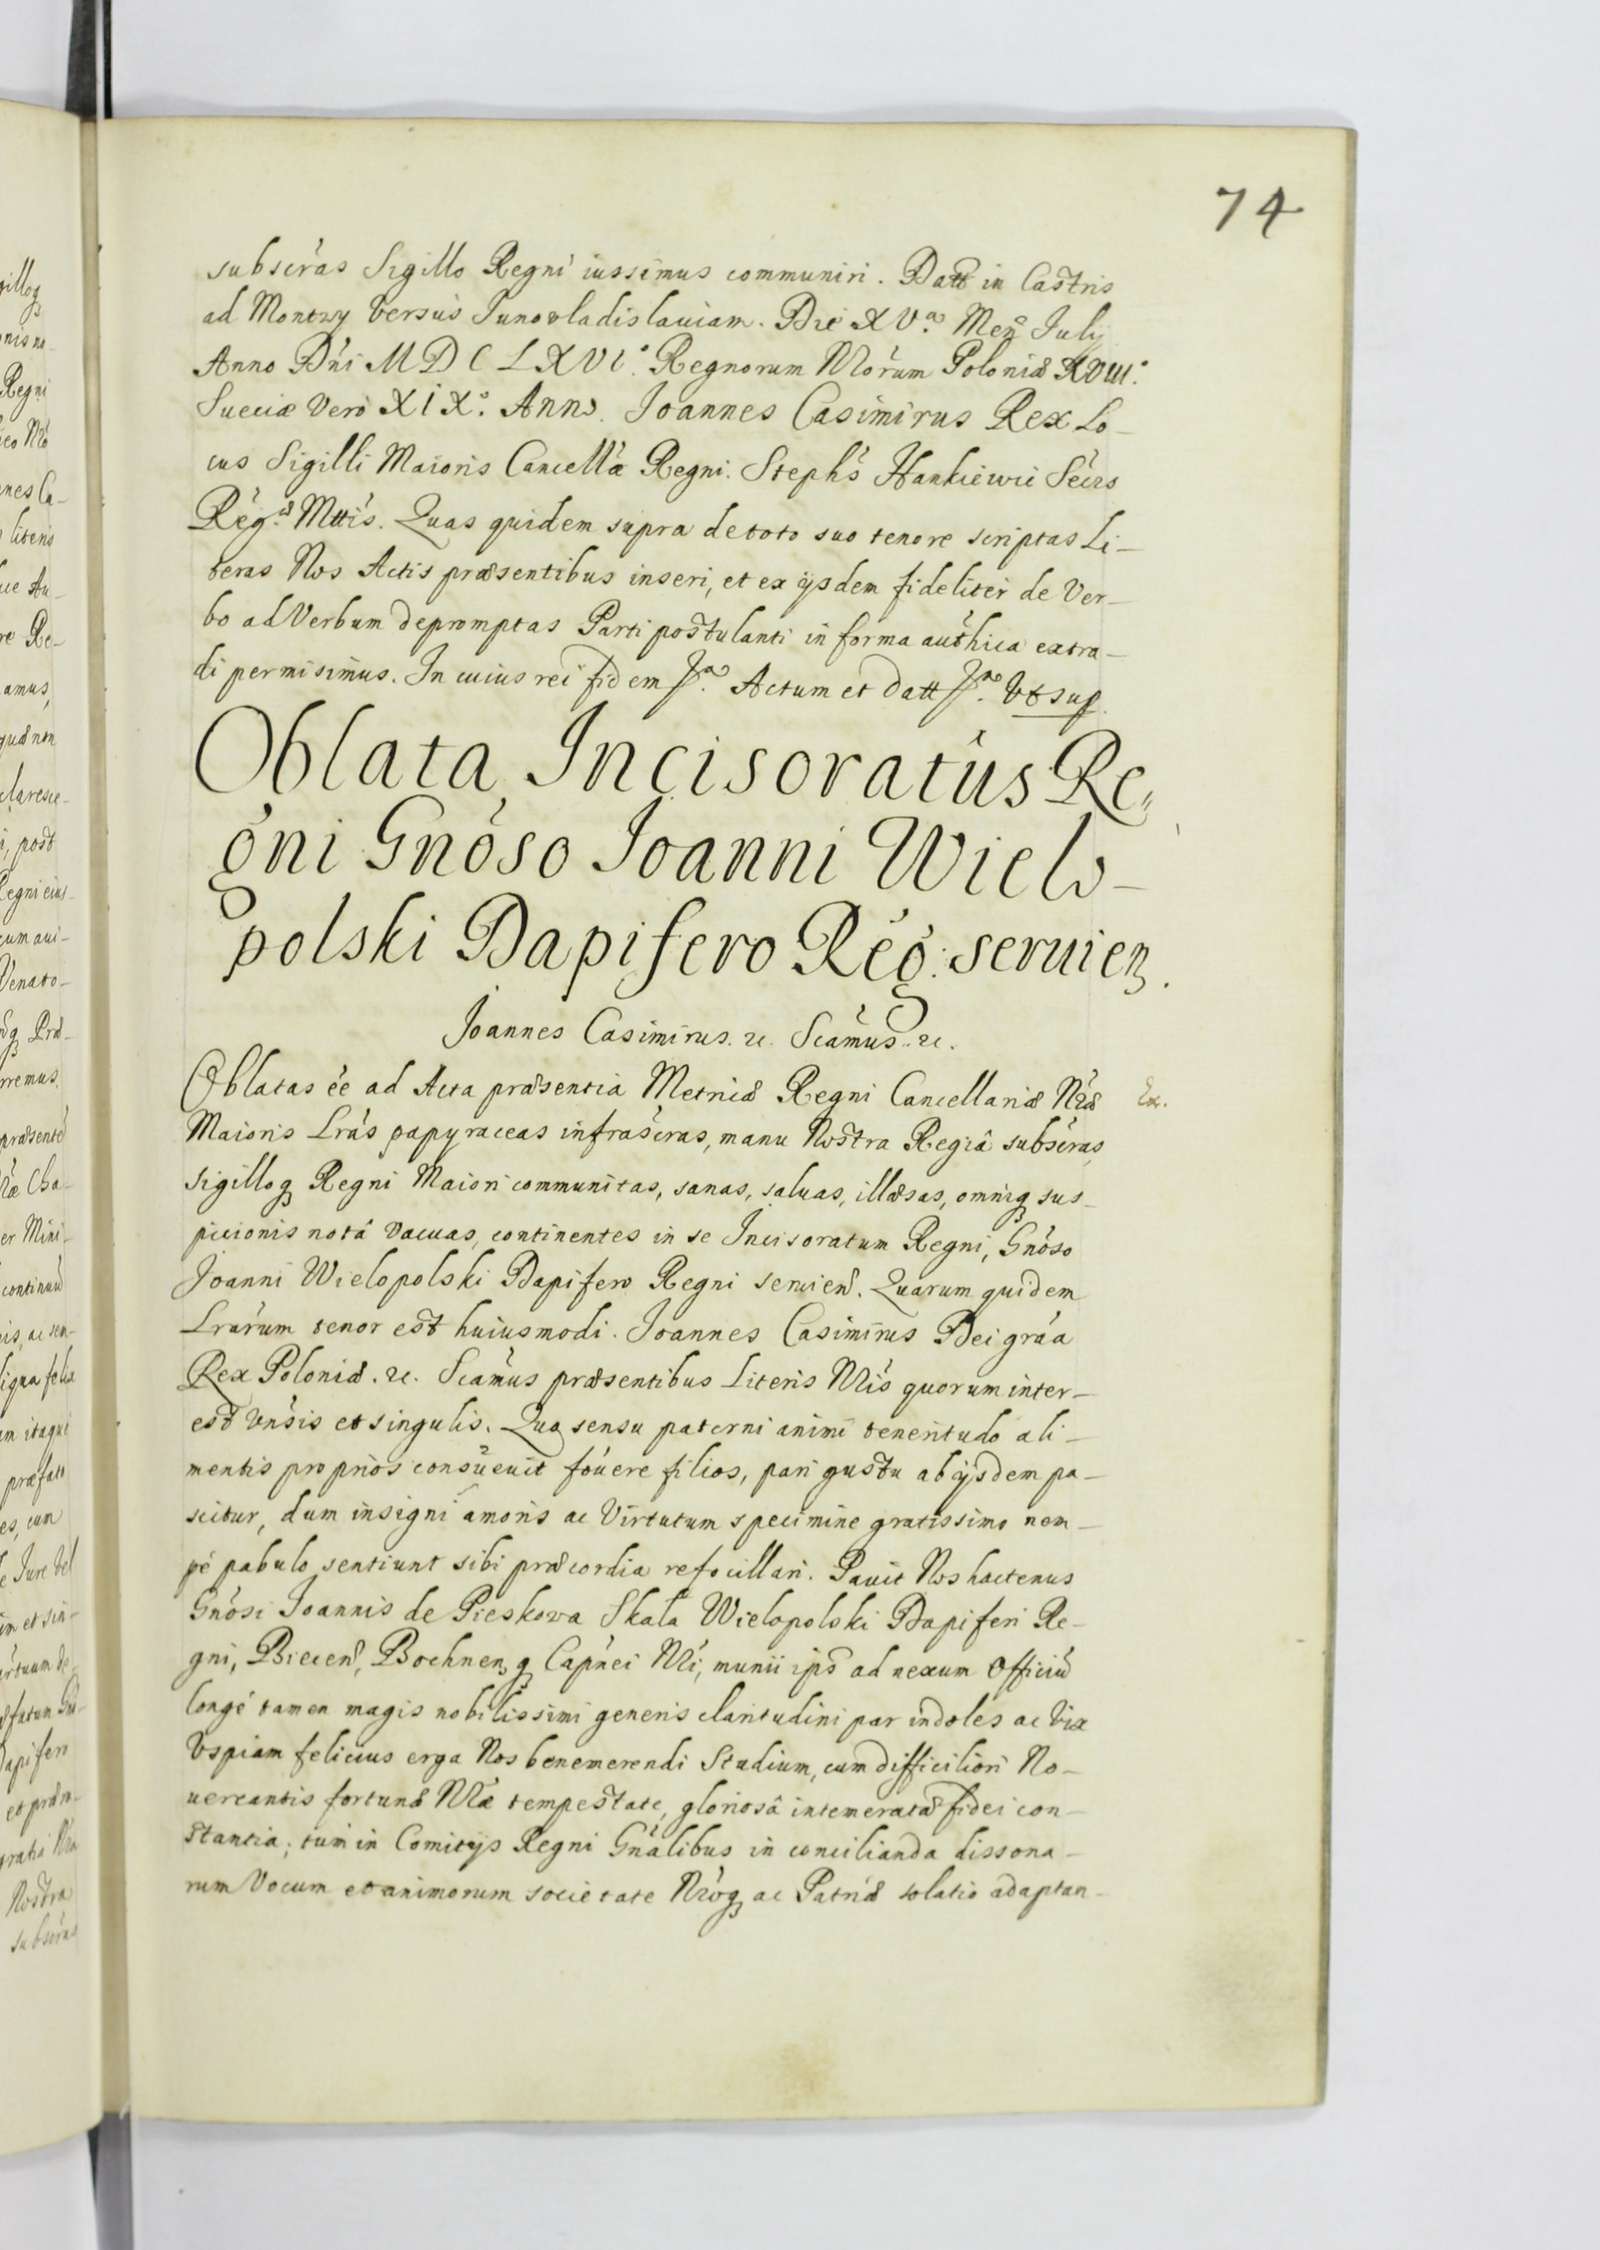 74
subscr̃as Sigillo Regni iussimus communiri. Datt in Castris
ad Montwy versus Junovladislauiam. Die XVa. Mens Julij
Anno Dñi MDCLXVIo. Regnorum Nrõrum Poloniæ XVIIIo.
Sueciæ Verò XIXo. Anno. Joannes Casimirus Rex Lo-
cus Sigilli Maioris Cancellæ Regni. Stephs Hankiewic Secrs
Regæ. Mttis. Quas quidem supra de toto suo tenore scriptas Li-
teras Nos Actis præsentibus inseri, et ex ijsdem fideliter de Ver-
bo ad Verbum depromptas Parti postulanti in forma authica extra-
di permisimus. In cuius rei fidem pa. Actum et datt pa. Vt sup.
Oblata Incisoratûs Re-
gni Gnoso Joanni Wielo-
polski Dapifero Reg: seruien.
Joannes Casimirus. &. Scamus. &.
Oblatas ée ad Acta præsentia Metricæ Regni Cancellariæ Nræ
Ex.
Maioris Lrás papyraceas infrascras, manu Nostra Regiâ subscras,
sigilloq Regni Maiori communitas, sanas, saluas, illæsas, omniq sus-
picionis notâ vacuas, continentes in se Incisoratum Regni, Gnoso
Joanni Wielopolski Dapifero Regni seruien. Quarum quidem
Lrarum tenor est huiusmodi. Joannes Casimirus Dei gráa
Rex Poloniæ. &. Scamus præsentibus Literis Nris quorum inter-
est Vnsis et singulis. Quo sensu paterni animi teneritudo ali-
mentis proprios consueuit fouere filios, pari gustu ab ijsdem pa-
scitur, dum insigni amoris ac Virtutum specimine gratissimo nem-
pé pabulo sentiunt sibi præcordia refocillari. Pauit Nos hactenus
Gnosi Joannis de Pieskowa Skała Wielopolski Dapiferi Re-
gni, Biecen, Bochnenq Capnei Nri, munii ips ad nexum Officiu
longé tamen magis nobilissimi generis claritudini par indoles ac Vix
Vspiam felicius erga Nos benemerendi Studium, cum difficiliori No-
uercantis fortunæ Nræ tempestate, gloriosâ intemeratæ fidei con-
stantia; tum in Comitijs Regni Gnalibus in concilianda dissona-
rum Vocum et animorum societate Nroq ac Patriæ solatio adaptan-